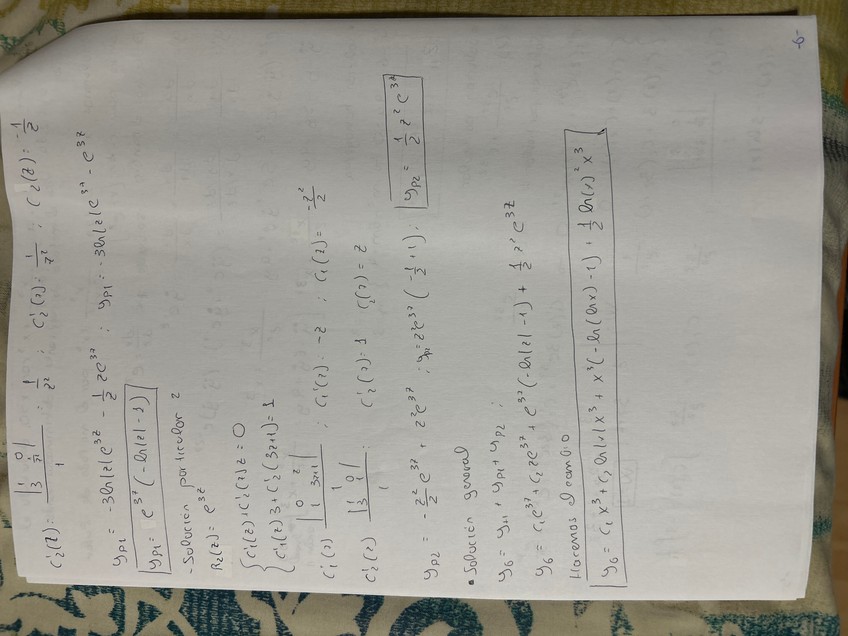 c₂'(z): |1 0; 3 1/z²| / 1 ; 1/z² ; c₂'(z): 1/z² ; c₂(z): -1/z
y_p1 = -3ln|z|e^3z - 1/z ze^3z ; y_p1 = -3ln|z|e^3z - e^3z
y_p1 = e^3z(-ln|z|-1)
- Solución particular 2
R₂(z) = e^3z
{ c₁'(z)+c₂'(z)z=0
{ c₁'(z)3+c₂'(3z+1)=1
c₁'(z) |0 z; 1 3z+1| / 1 ; c₁'(z) = -z ; c₁(z) = -z²/2
c₂'(z) |1 0; 3 1| / 1 ; c₂'(z): 1 c₂(z) = z
y_p2 = -z²/2 e^3z + z²e^3z ; y_p2 = z²e^3z(-1/2+1); y_p2 = 1/2 z² e^3z
• Solución general
y_G = y_H + y_p1 + y_p2 ;
y_G = c₁e^3z + c₂ze^3z + e^3z(-ln|z|-1) + 1/2 z² e^3z
Hacemos el cambio
y_G = c₁x³ + c₂ln|x|x³ + x³(-ln(lnx)-1) + 1/2 ln(x)² x³
-6-